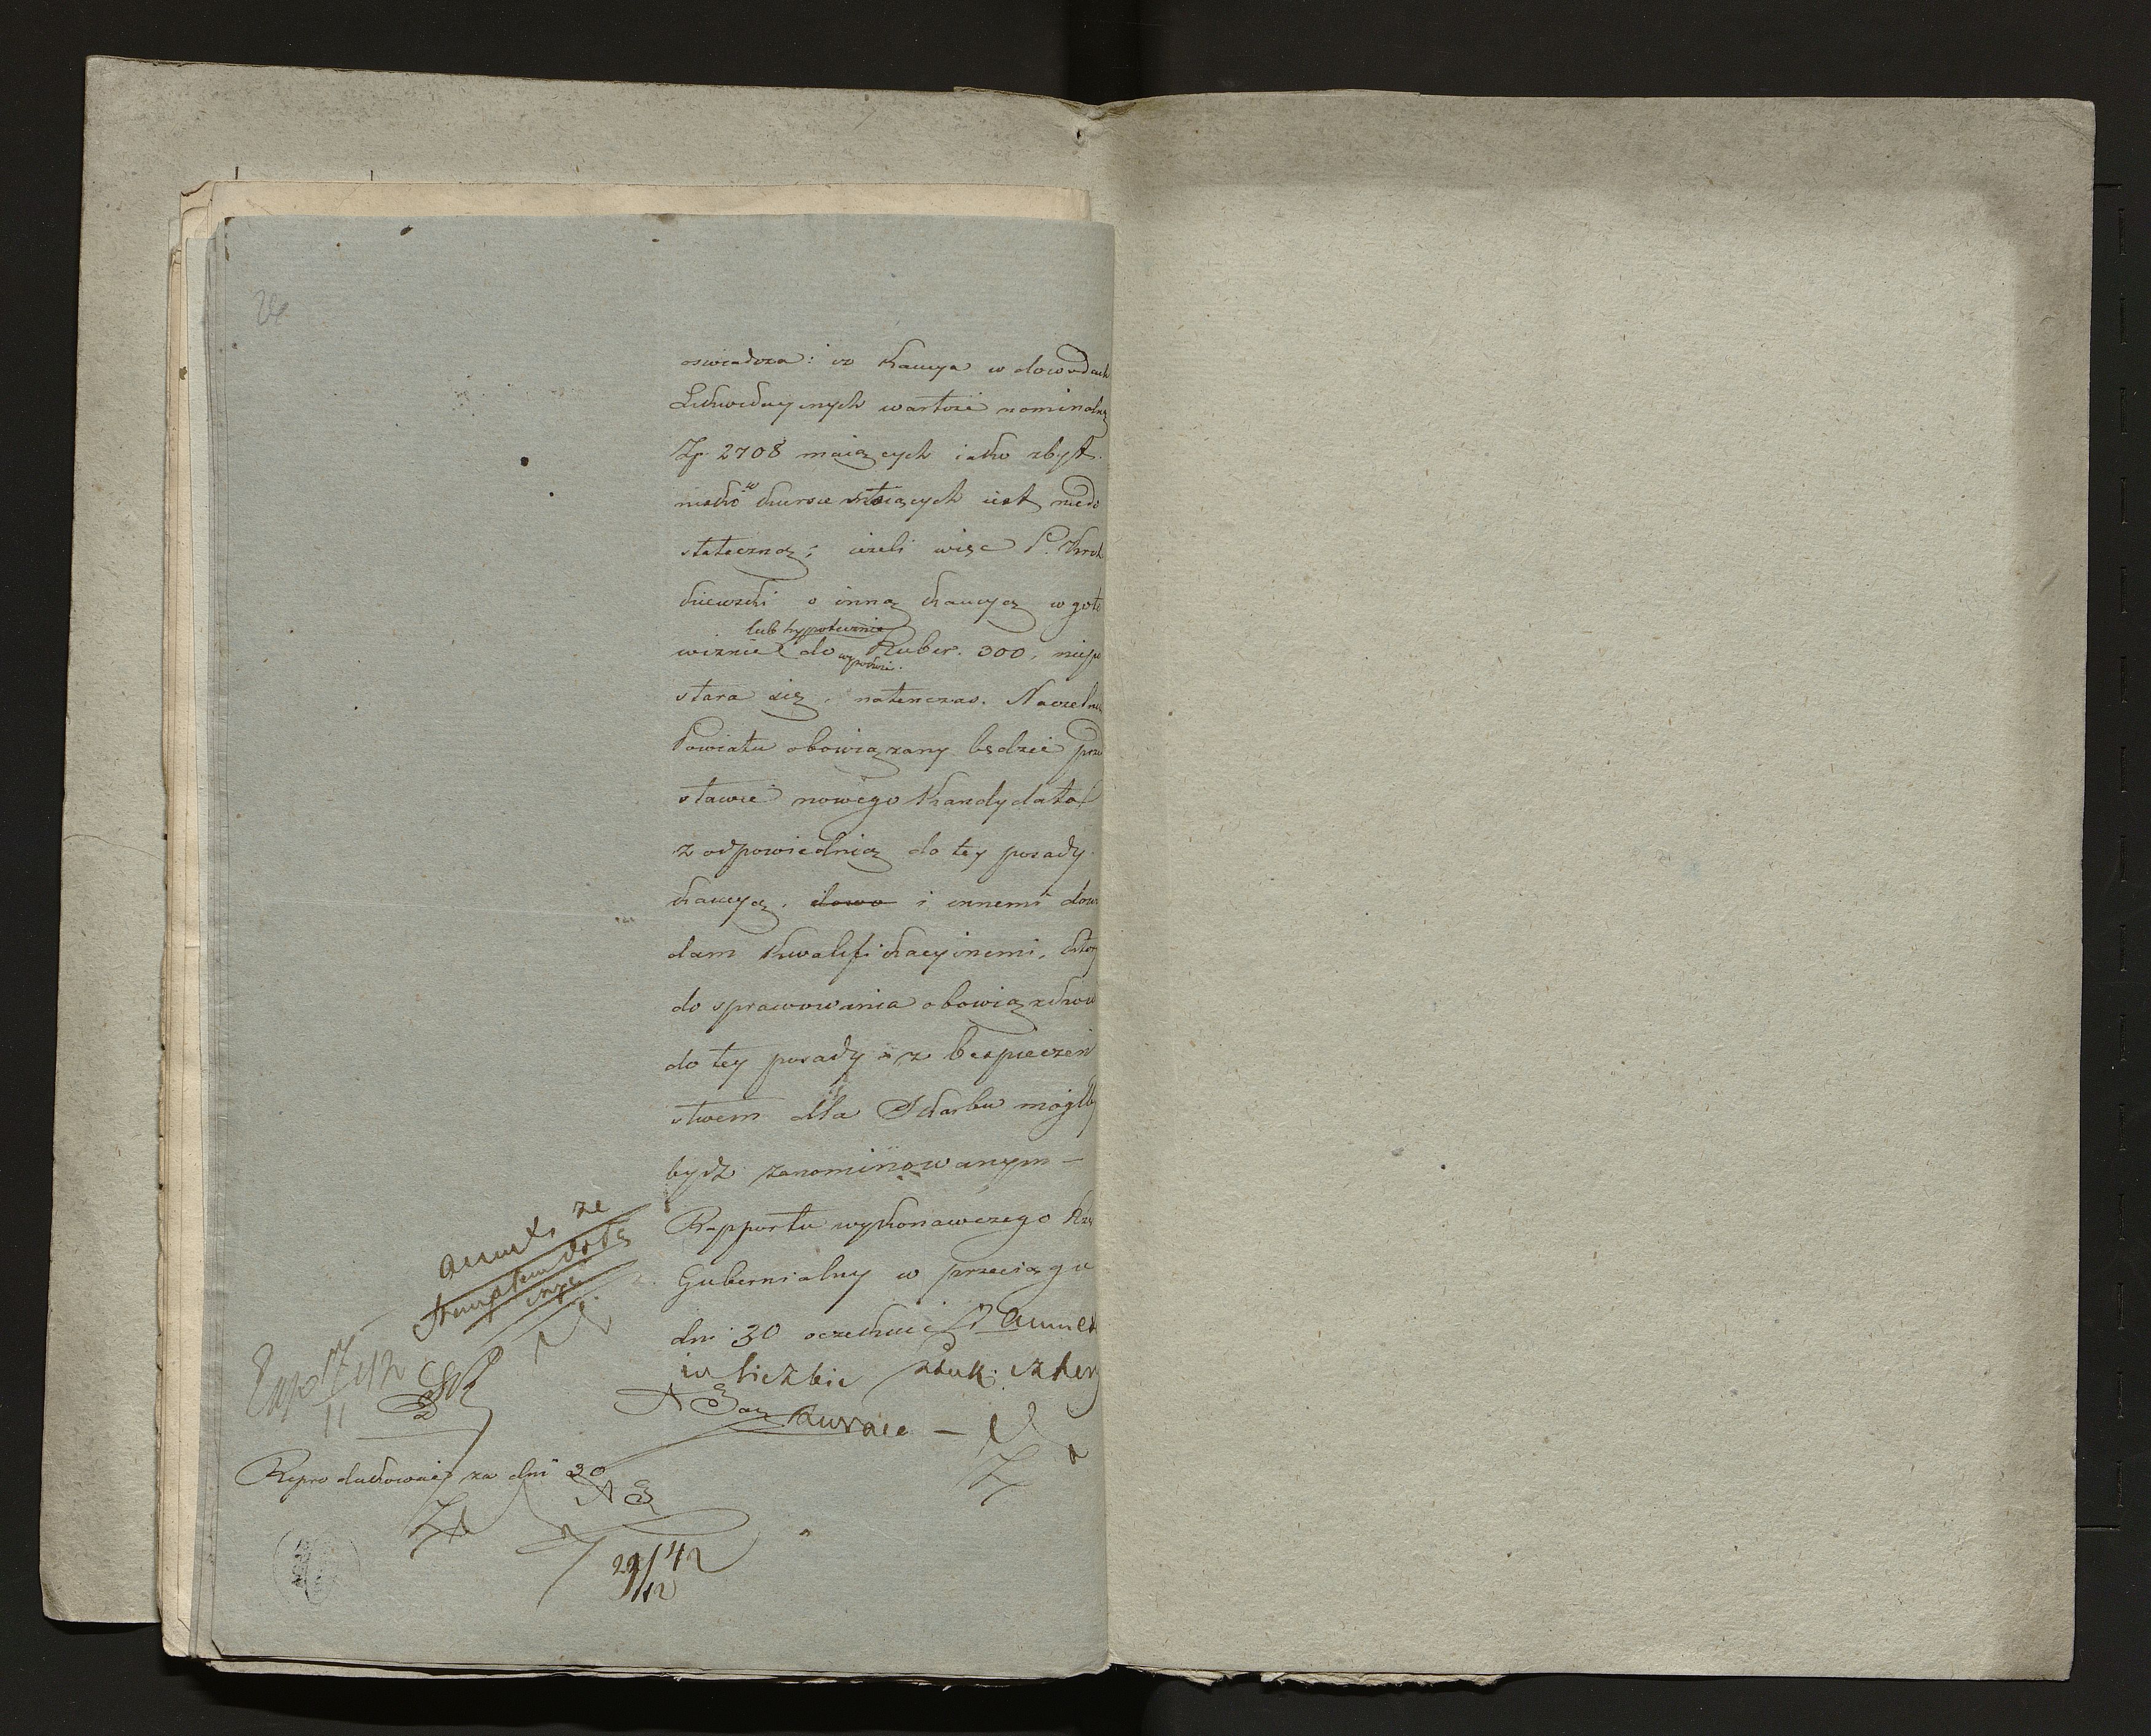 oswiadcza: iż Kaucya w dowodach
Likwidacyinych wartość nominalną
Zp. 2708 maiących iako zbyt
nisko w kursie stoiących iest niedo
stateczną; ieżeli więc P.
kiewski o inną kaucyą w goto
lub hypotecznie
wiznie do wysokości Rubsr. 300, niepo
stara się, natenczas. Naczelnik
Powiatu obowiązany będzie prze
stawić nowego Kandydata
z odpowiednią do tey posady
kaucyą, dowo i innemi dowo
dam kwalifikacyinemi, który
do sprawowania obowiązków
do tey posady z bespieczeń
stwem dla Skarbu mógłby
bydź zanominowanym –
Rapportu wykonawczego Rząd
Gubernialny w przeciągu
dni 30 oczekuie i annexa
w liczbie sztuk cztery
zwraca –
annex ze
Reprodukować za dni 30
29/12 42